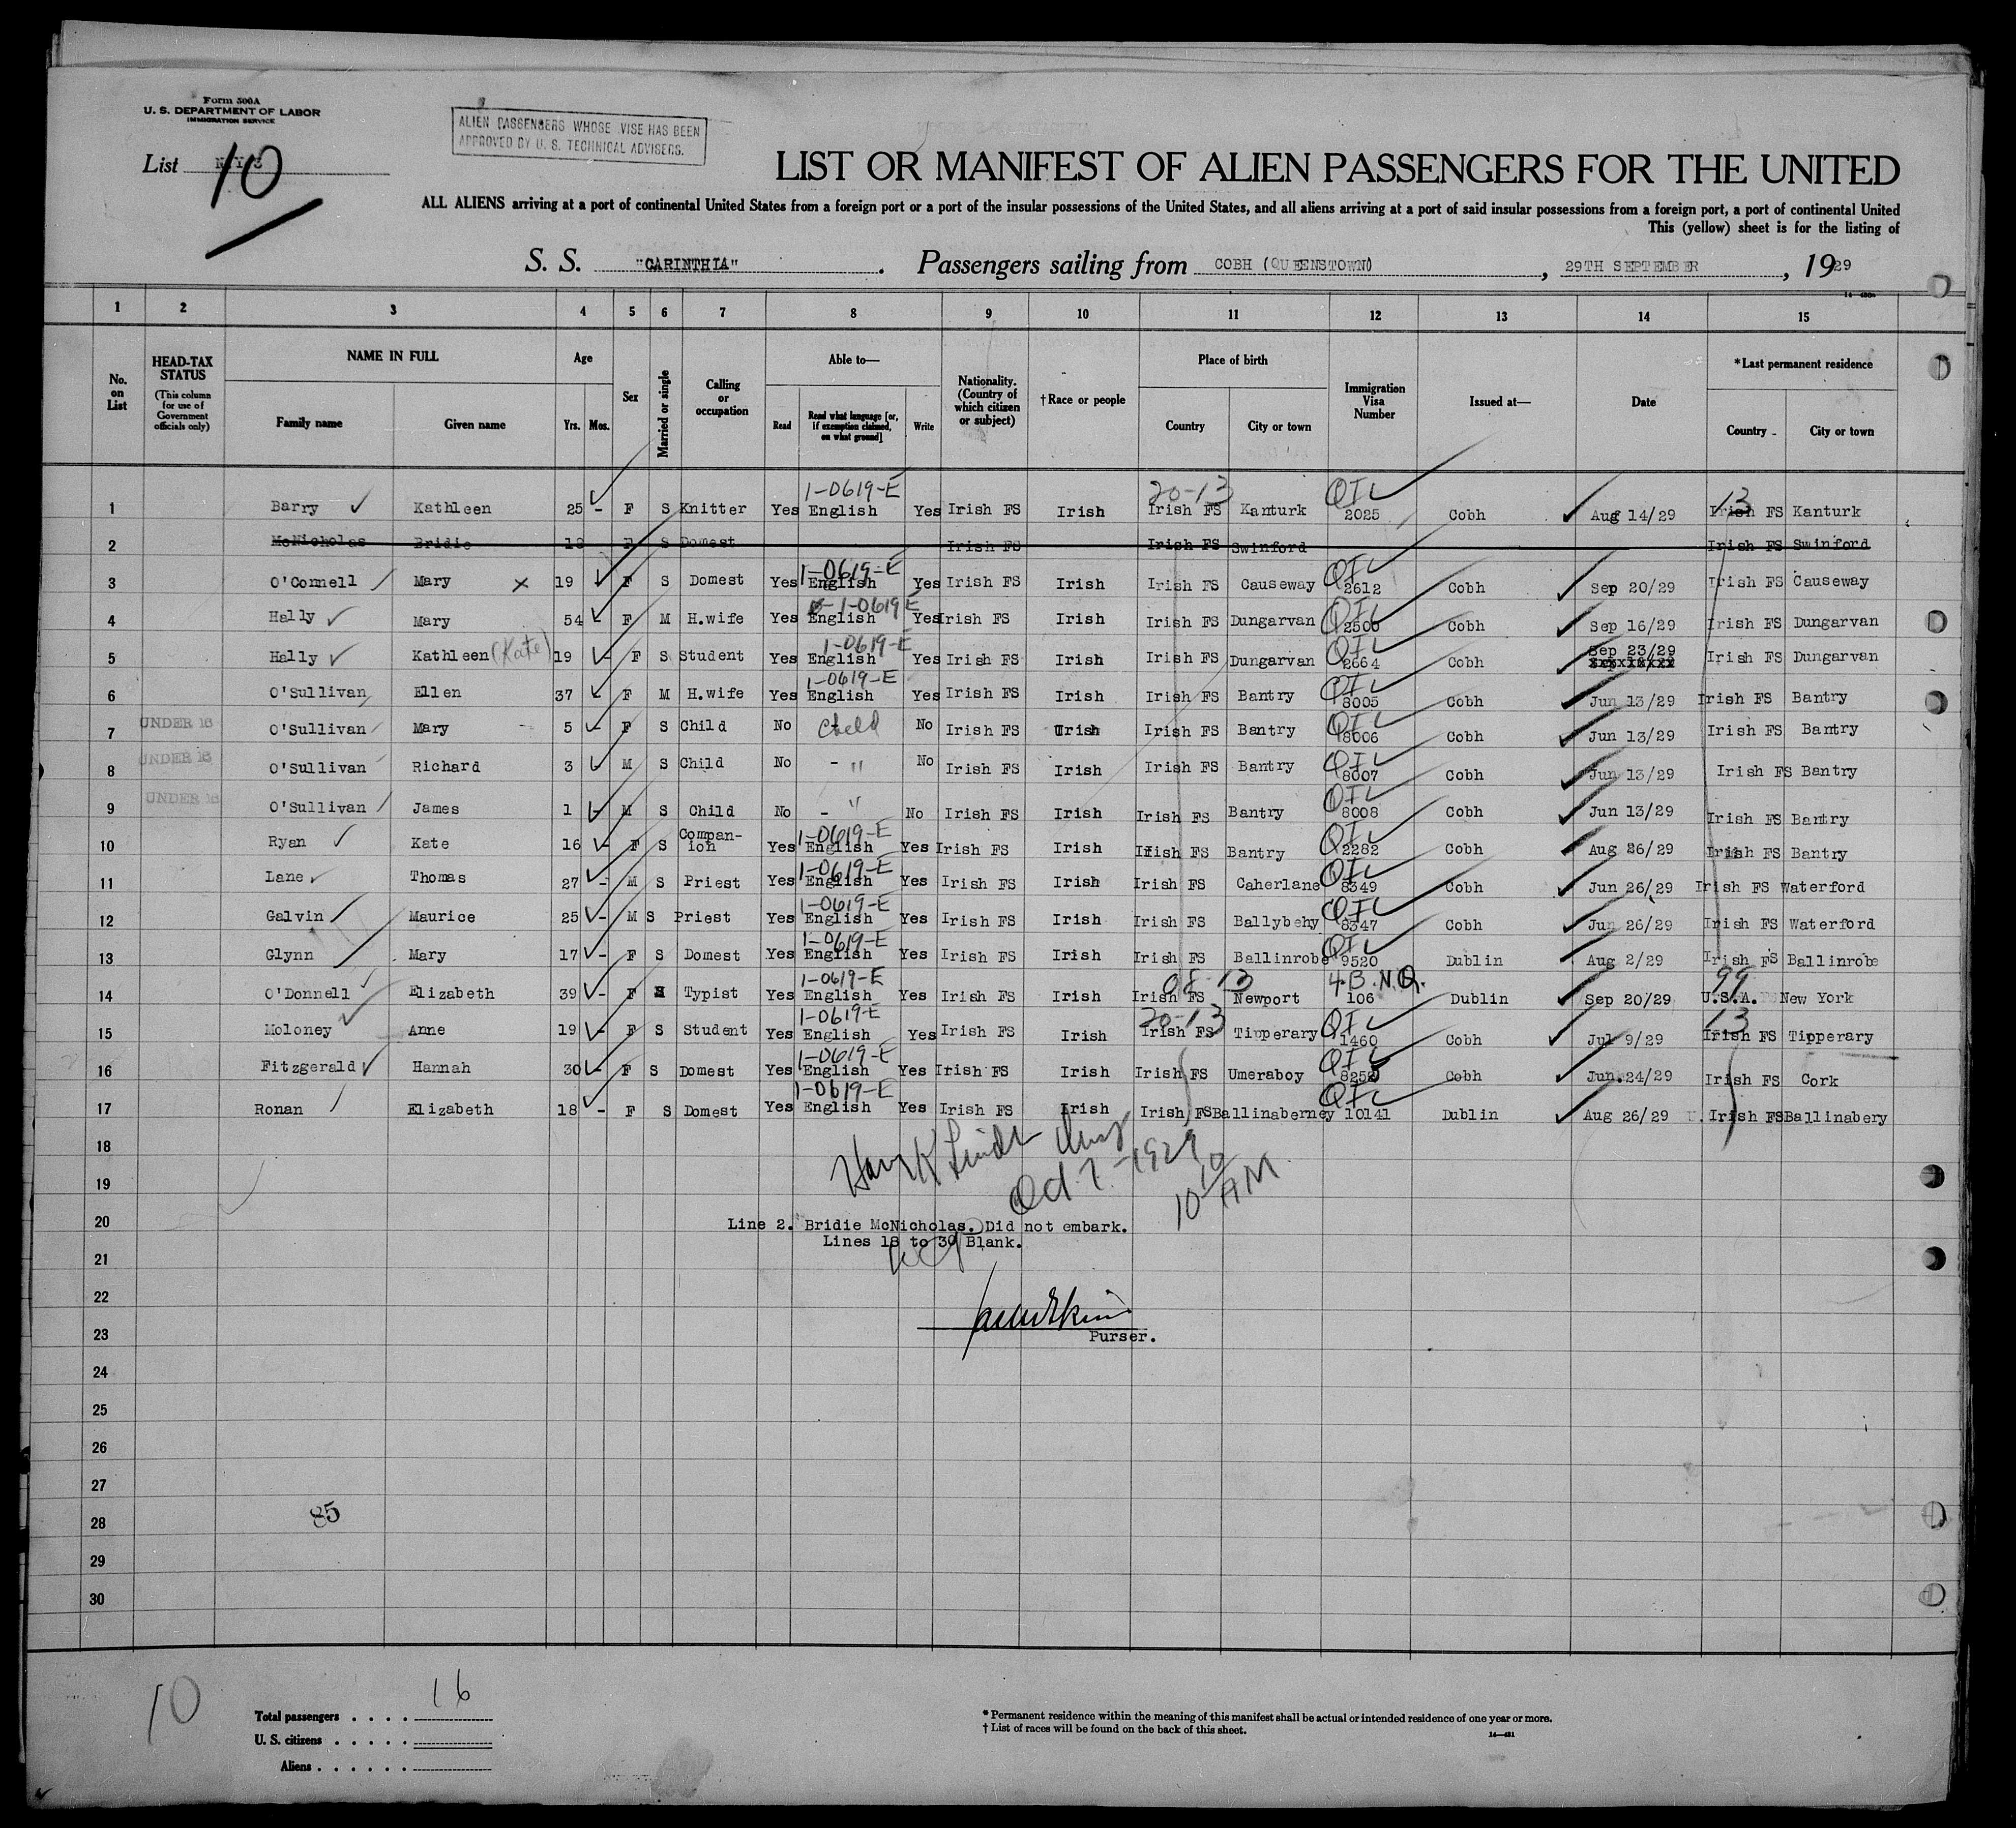 Form 500A
U. S. DEPARTMENT OF LABOR
IMMIGRATION SERVICE
ALIEN PASSENGERS WHOSE VISE HAS BEEN
APPROVED BY U. S. TECHNICAL ADVISERS.
List N.Y. 3 10
LIST OR MANIFEST OF ALIEN PASSENGERS FOR THE UNITED
ALL ALIENS arriving at a port of continental United States from a foreign port or a port of the insular possessions of the United States, and all aliens arriving at a port of said insular possessions from a foreign port, a port of continental United
This (yellow) sheet is for the listing of
S. S. "CARINTHIA". Passengers sailing from COBH (QUEENSTOWN), 29TH SEPTEMBER, 1929
1 2 3 4 5 6 7 8 9 10 11 12 13 14 15
No. on List
HEAD-TAX STATUS (This column for use of Government officials only)
NAME IN FULL Family name Given name
Age Yrs. Mos.
Sex
Married or single
Calling or occupation
Able to— Read Read what language [or, if exemption claimed, on what ground] Write
Nationality. (Country of which citizen or subject)
†Race or people
Place of birth Country City or town
Immigration Visa Number
Issued at—
Date
*Last permanent residence Country City or town
1 Barry Kathleen 25 - F S Knitter Yes 1-0619-E English Yes Irish FS Irish 20-13 Irish FS Kanturk QIV 2025 Cobh Aug 14/29 13 Irish FS Kanturk
2 McNicholas Bridie 18 F S Domest Irish FS Irish FS Swinford Irish FS Swinford
3 O'Connell Mary x 19 F S Domest Yes 1-0619-E English Yes Irish FS Irish Irish FS Causeway QIV 2612 Cobh Sep 20/29 Irish FS Causeway
4 Hally Mary 54 F M H.wife Yes 1-0619E English Yes Irish FS Irish Irish FS Dungarvan QIV 2500 Cobh Sep 16/29 Irish FS Dungarvan
5 Hally Kathleen (Kate) 19 - F S Student Yes 1-0619-E English Yes Irish FS Irish Irish FS Dungarvan QIV 2664 Cobh Sep 23/29 Irish FS Dungarvan
6 O'Sullivan Ellen 37 F M H.wife Yes 1-0619-E English Yes Irish FS Irish Irish FS Bantry QIV 8005 Cobh Jun 13/29 Irish FS Bantry
7 UNDER 16 O'Sullivan Mary 5 - F S Child No Child No Irish FS Irish Irish FS Bantry QIV 8006 Cobh Jun 13/29 Irish FS Bantry
8 UNDER 16 O'Sullivan Richard 3 M S Child No - " No Irish FS Irish Irish FS Bantry QIV 8007 Cobh Jun 13/29 Irish FS Bantry
9 UNDER 16 O'Sullivan James 1 - M S Child No - " No Irish FS Irish Irish FS Bantry QIV 8008 Cobh Jun 13/29 Irish FS Bantry
10 Ryan Kate 16 - F S Compan-ion Yes 1-0619-E English Yes Irish FS Irish Irish FS Bantry QIV 2282 Cobh Aug 26/29 Irish FS Bantry
11 Lane Thomas 27 - M S Priest Yes 1-0619-E English Yes Irish FS Irish Irish FS Caherlane QIV 8349 Cobh Jun 26/29 Irish FS Waterford
12 Galvin Maurice 25 - M S Priest Yes 1-0619-E English Yes Irish FS Irish Irish FS Ballybehy QIV 8347 Cobh Jun 26/29 Irish FS Waterford
13 Glynn Mary 17 - F S Domest Yes 1-0619-E English Yes Irish FS Irish Irish FS Ballinrobe QIV 9520 Dublin Aug 2/29 Irish FS Ballinrobe
14 O'Donnell Elizabeth 39 - F Typist Yes 1-0619-E English Yes Irish FS Irish 08-13 Irish FS Newport 4.B.N.Q. 106 Dublin Sep 20/29 99 U.S.A. New York
15 Moloney Anne 19 - F S Student Yes 1-0619-E English Yes Irish FS Irish 20-13 Irish FS Tipperary QIV 1460 Cobh Jul 9/29 13 Irish FS Tipperary
16 Fitzgerald Hannah 30 - F S Domest Yes 1-0619-E English Yes Irish FS Irish Irish FS Umeraboy QIV 8252 Cobh Jun.24/29 Irish FS Cork
17 Ronan Elizabeth 18 - F S Domest Yes 1-0619-E English Yes Irish FS Irish Irish FS Ballinaberney QIV 10141 Dublin Aug 26/29 Irish FS Ballinabery
18
Oct 7-1929
19
10 10 AM
20
Line 2. Bridie McNicholas. Did not embark.
Lines 18 to 30 Blank.
21
22
23
Purser.
24
25
26
27
28 85
29
30
10
Total passengers . . . . 16
U. S. citizens . . . . .
Aliens . . . . . .
* Permanent residence within the meaning of this manifest shall be actual or intended residence of one year or more.
† List of races will be found on the back of this sheet.
14—481